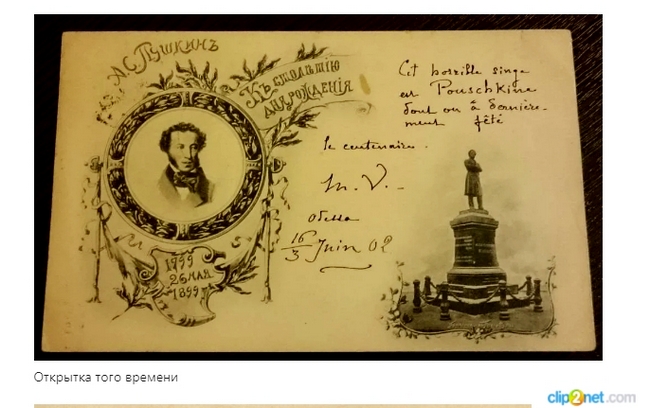 А.С. Пушкинъ
Къ столѣтію
дня рожденія
1799
26 мая
1899
Cet horrible singe
est Pouschkine
dont on a dernière-
ment fêté
le centenaire.
M. V.
Odessa
16/3 Juin 02
Открытка того времени
clip2net.com